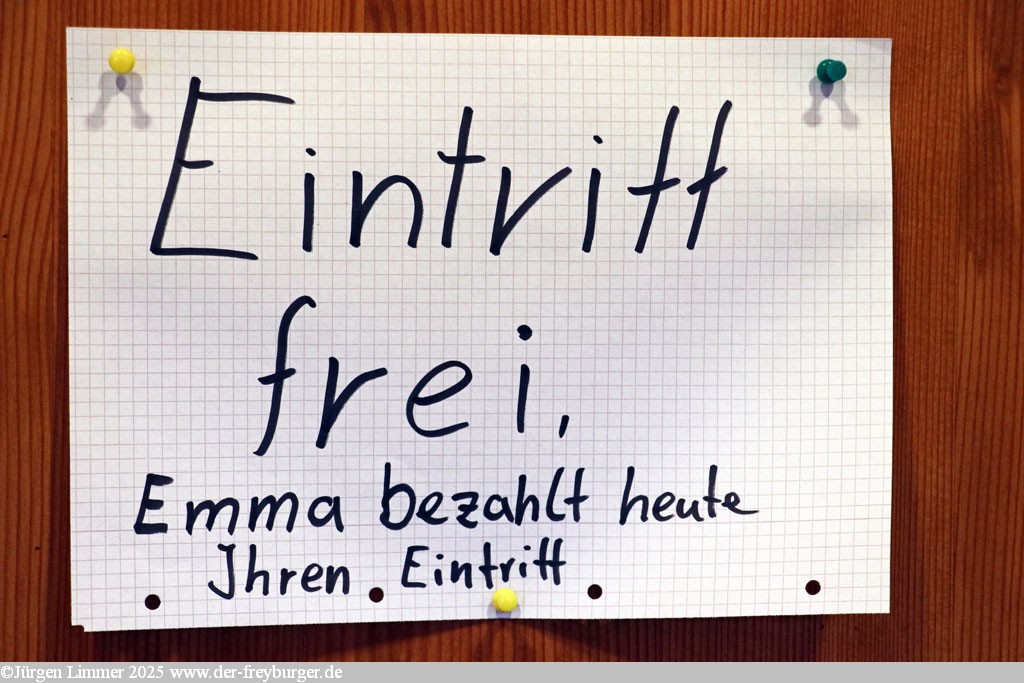 Eintritt
frei,
Emma bezahlt heute
Ihren Eintritt
©Jürgen Limmer 2025 www.der-freyburger.de